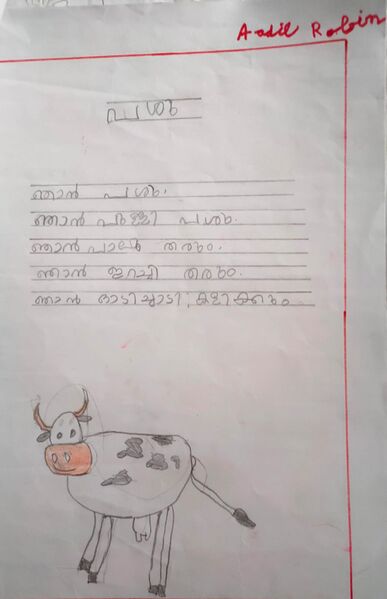 Aadil Robin
പശു
ഞാൻ പശു.
ഞാൻ പുള്ളി പശു.
ഞാൻ പാലു തരും.
ഞാൻ ഇറച്ചി തരും.
ഞാൻ ഓടിച്ചാടി, കളിക്കും.